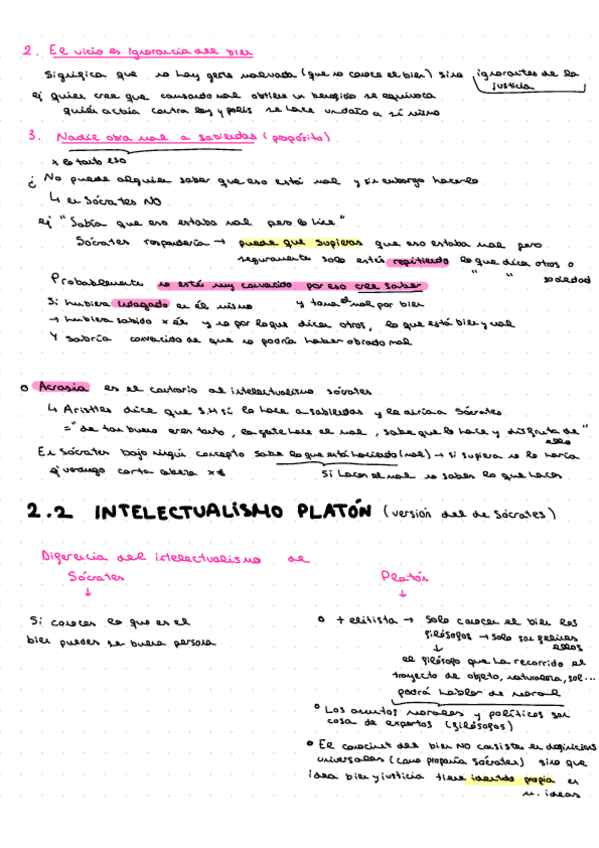 2. El vicio es ignorancia del bien
Significa que no hay gente malvada (que no conoce el bien) sino ignorantes de la
justicia
ej quien cree que causando mal obtiene un beneficio se equivoca
quien actua contra ley y polis se hace un daño a sí mismo
3. Nadie obra mal a sabiendas (propósito)
x lo tanto eso
¿No puede alguien saber que eso está mal y sin embargo hacerlo
↳ en Sócrates NO
ej "Sabía que eso estaba mal pero lo hice"
Sócrates respondería → puede que supieras que eso estaba mal pero
seguramente solo estés repitiendo lo que dice otros o
" " sociedad
Probablemente no estés muy convencido por eso cree saber
Si hubiera indagado en él mismo y toma el mal por bien
→ hubiera sabido x él y no por lo que dicen otros, lo que está bien y mal
Y sabría convencido de que no podría haber obrado mal
o Acrasia es el contrario al intelectualismo sócrates
↳ Aristles dice que S.H sí lo hace a sabiendas y le diría a Sócrates
= "de tan bueno eres tonto, la gente hace el mal, sabe que lo hace y disfruta de"
ello
En Sócrates bajo ningún concepto sabe lo que está haciendo (mal) → si supiera no lo haría
ej verdugo corta cabeza si haces el mal no sabes lo que haces
2.2 INTELECTUALISMO PLATÓN (versión del de Sócrates)
Diferencia del intelectualismo de
Sócrates Platón
↓ ↓
Si conoces lo que es el
bien puedes ser buena persona
o + elitista → solo conocen el bien los
filósofos → solo son felices
ellos
↓
el filósofo que ha recorrido el
trayecto de objeto, naturaleza, sol...
podrá hablar de moral
o Los asuntos morales y políticos son
cosa de expertos (filósofos)
o El conocimt del bien NO consiste en definiciones
universales (como proponía Sócrates) sino que
idea bien y justicia tiene identdd propia en
m. ideas